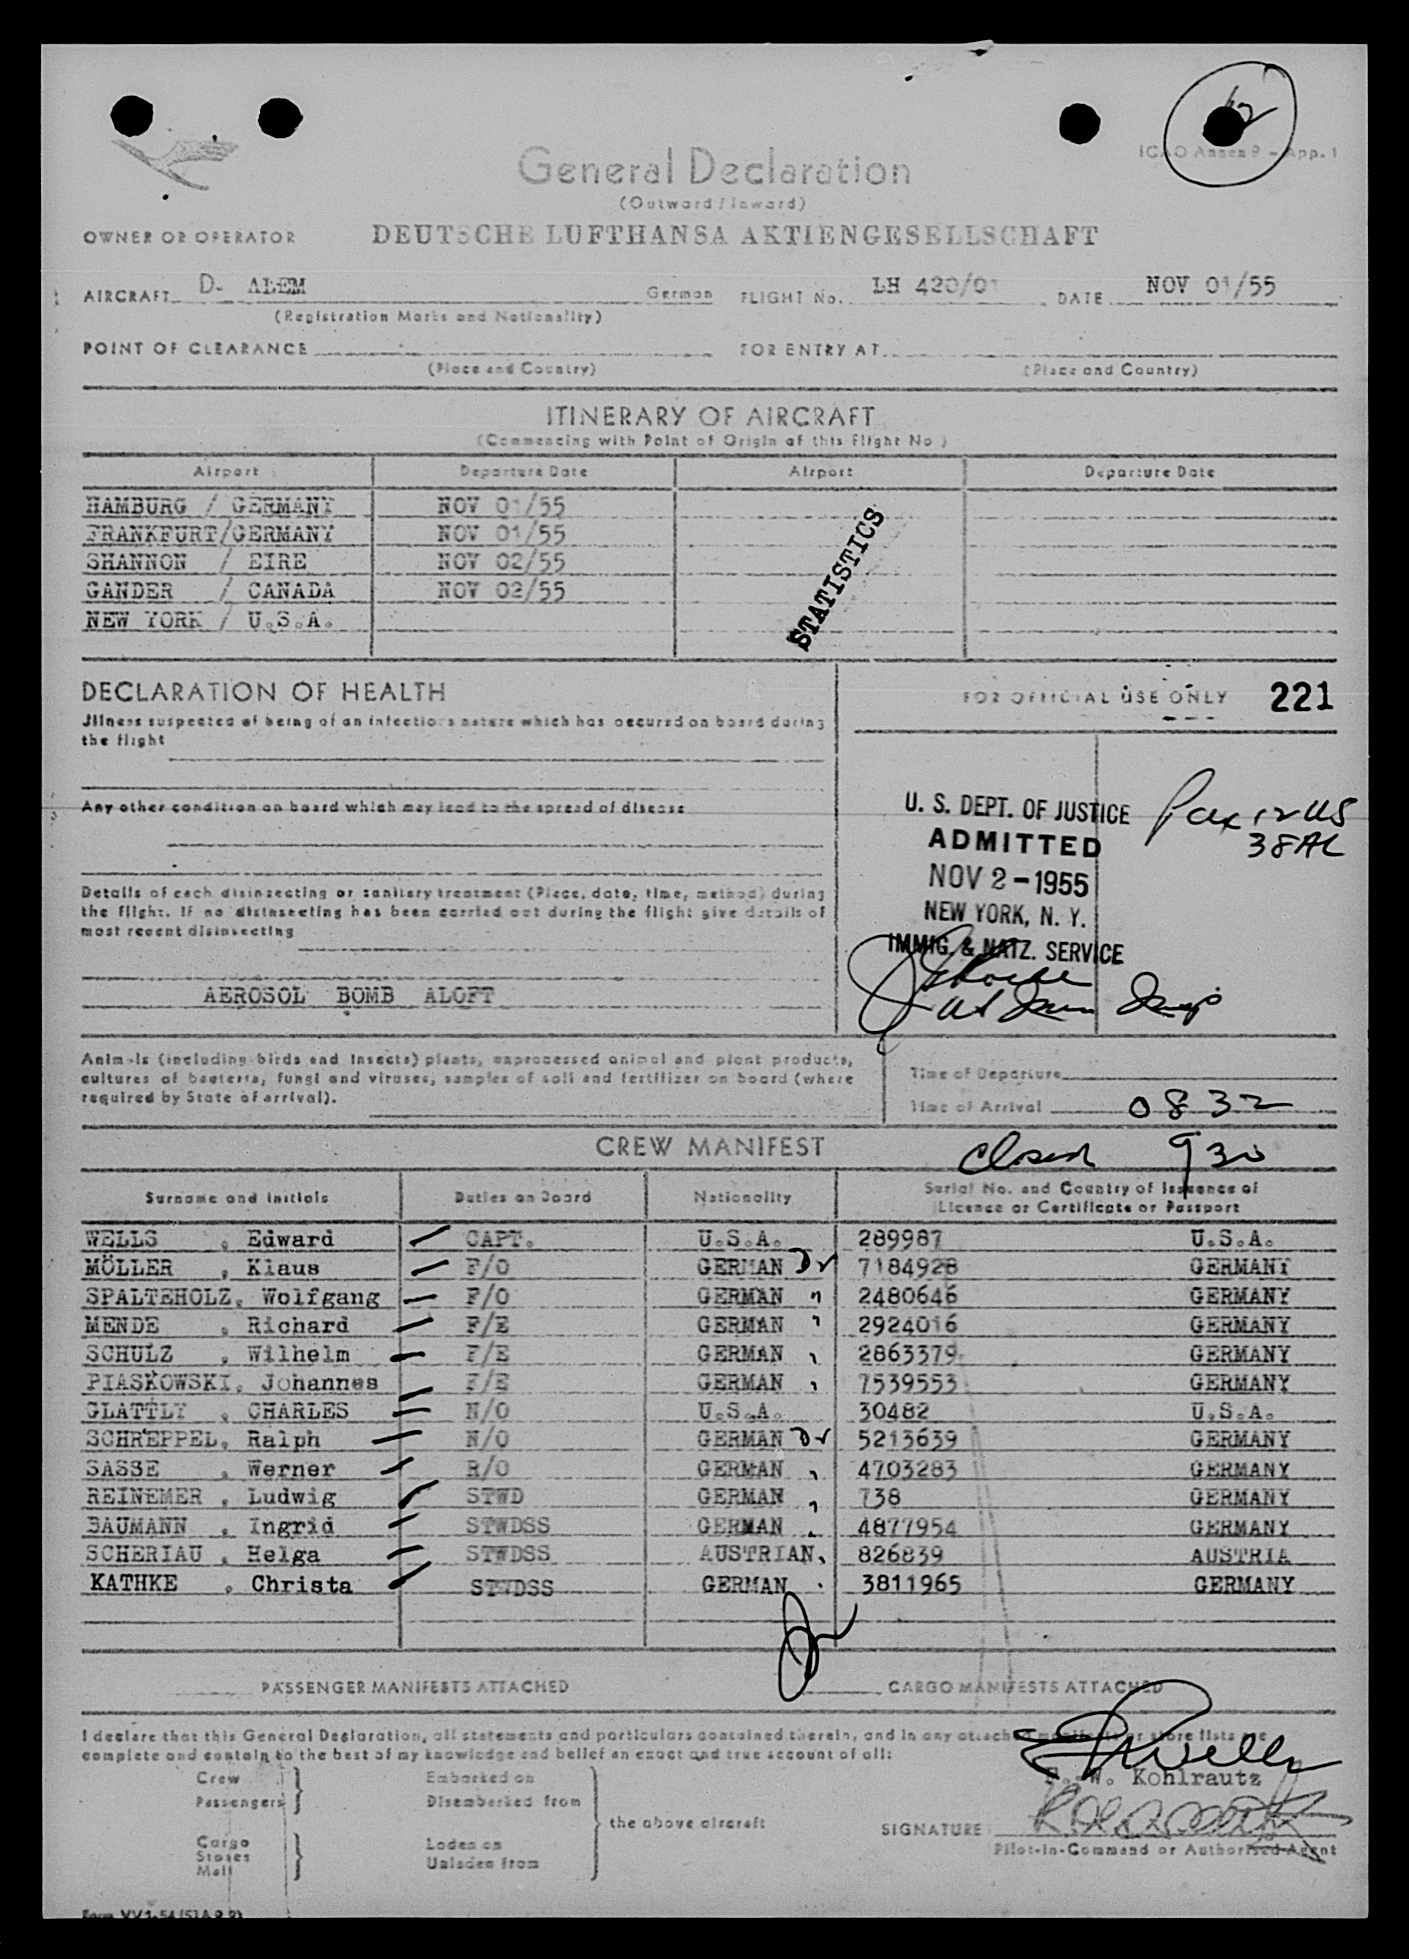 12
ICAO Annex 9 - App. 1
General Declaration
(Outward / Inward)
OWNER OR OPERATOR DEUTSCHE LUFTHANSA AKTIENGESELLSCHAFT
AIRCRAFT D- ALEM German FLIGHT No. LH 420/01 DATE NOV 01/55
(Registration Marks and Nationality)
POINT OF CLEARANCE FOR ENTRY AT
(Place and Country) (Place and Country)
ITINERARY OF AIRCRAFT
(Commencing with Point of Origin of this Flight No.)
Airport Departure Date Airport Departure Date
HAMBURG / GERMANY NOV 01/55
FRANKFURT/GERMANY NOV 01/55
SHANNON / EIRE NOV 02/55
GANDER / CANADA NOV 02/55
NEW YORK / U.S.A.
STATISTICS
DECLARATION OF HEALTH
FOR OFFICIAL USE ONLY 221
Jllness suspected of being of an infectious nature which has occured on board during
the flight
Any other condition on board which may lead to the spread of disease
U. S. DEPT. OF JUSTICE
ADMITTED
NOV 2 - 1955
NEW YORK, N. Y.
IMMIG. & NATZ. SERVICE
Pax 12 US
38 AL
Details of each disinsecting or sanitary treatment (Place, date, time, method) during
the flight. If no disinsecting has been carried out during the flight give details of
most recent disinsecting
AEROSOL BOMB ALOFT
Animals (including birds and insects) plants, unprocessed animal and plant products,
cultures of bacteria, fungi and viruses, samples of soil and fertilizer on board (where
required by State of arrival).
Time of Departure
Time of Arrival 0832
CREW MANIFEST
Closed 930
Surname and Initials Duties on Board Nationality Serial No. and Country of Issuance of
Licence or Certificate or Passport
WELLS , Edward CAPT. U.S.A. 289987 U.S.A.
MÖLLER , Klaus F/O GERMAN 7184928 GERMANY
SPALTEHOLZ, Wolfgang F/O GERMAN " 2480646 GERMANY
MENDE , Richard F/E GERMAN " 2924016 GERMANY
SCHULZ , Wilhelm F/E GERMAN 2863379 GERMANY
PIASKOWSKI, Johannes F/E GERMAN 7539553 GERMANY
GLATTLY , CHARLES N/O U.S.A. 30482 U.S.A.
SCHREPPEL, Ralph N/O GERMAN 5213639 GERMANY
SASSE , Werner R/O GERMAN 4703283 GERMANY
REINEMER , Ludwig STWD GERMAN 738 GERMANY
BAUMANN , Ingrid STWDSS GERMAN 4877954 GERMANY
SCHERIAU , Helga STWDSS AUSTRIAN 826839 AUSTRIA
KATHKE , Christa STWDSS GERMAN 3811965 GERMANY
PASSENGER MANIFESTS ATTACHED CARGO MANIFESTS ATTACHED
I declare that this General Declaration, all statements and particulars contained therein, and in any attached manifests or store lists are
complete and contain to the best of my knowledge and belief an exact and true account of all:
Crew Embarked on
Passengers Disembarked from
the above aircraft
Cargo Loden on
Stores
Mail Unladen from
E Wells
F.-W. Kohlrautz
SIGNATURE
Pilot-in-Command or Authorised Agent
Form VV 1-54